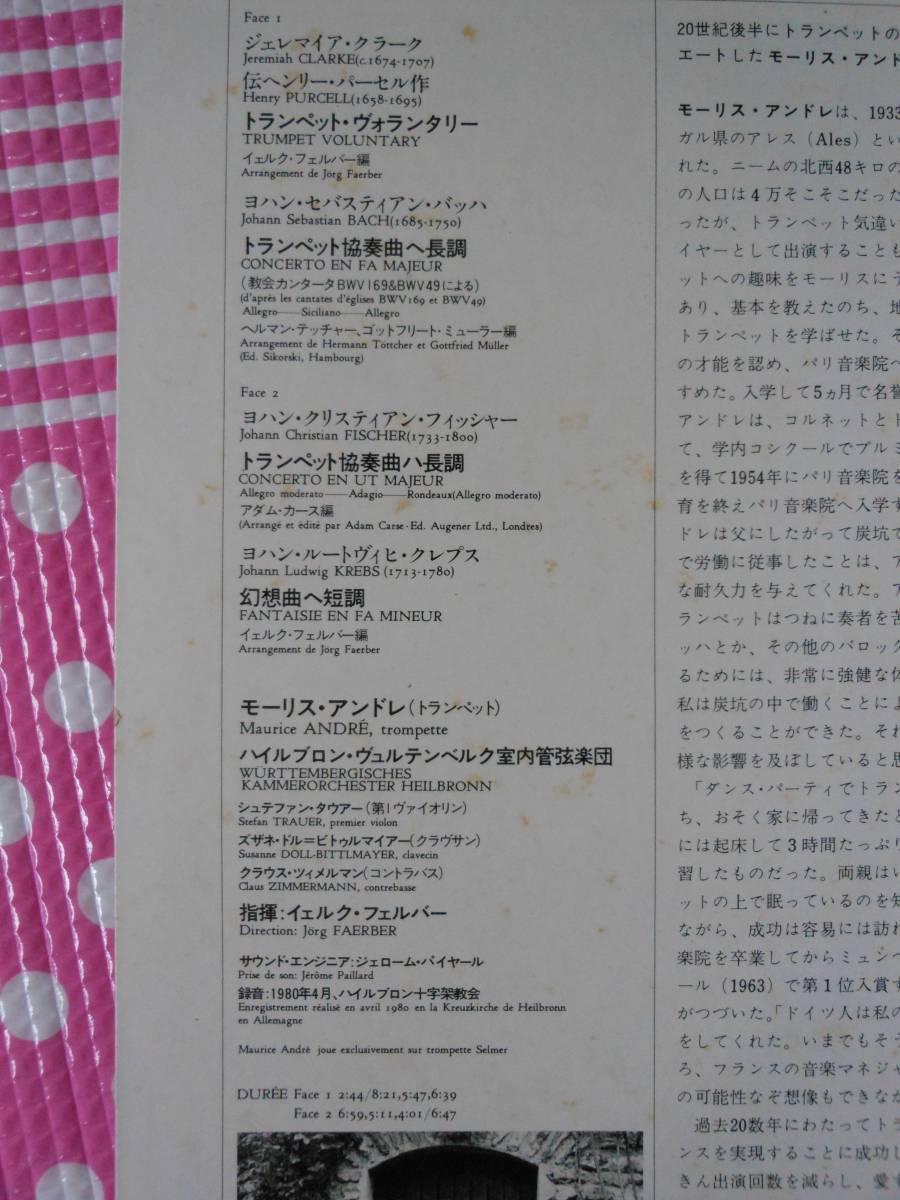 Face 1
ジェレマイア・クラーク
Jeremiah CLARKE(c.1674-1707)
伝ヘンリー・パーセル作
Henry PURCELL(1658-1695)
トランペット・ヴォランタリー
TRUMPET VOLUNTARY
イェルク・フェルバー編
Arrangement de Jörg Faerber
ヨハン・セバスティアン・バッハ
Johann Sebastian BACH(1685-1750)
トランペット協奏曲ヘ長調
CONCERTO EN FA MAJEUR
(教会カンタータBWV169&BWV49による)
(d'après les cantates d'églises BWV169 et BWV49)
Allegro——Siciliano——Allegro
ヘルマン・テッチャー、ゴットフリート・ミューラー編
Arrangement de Hermann Töttcher et Gottfried Müller
(Ed. Sikorski, Hambourg)
Face 2
ヨハン・クリスティアン・フィッシャー
Johann Christian FISCHER(1733-1800)
トランペット協奏曲ハ長調
CONCERTO EN UT MAJEUR
Allegro moderato——Adagio——Rondeaux(Allegro moderato)
アダム・カース編
(Arrangé et édité par Adam Carse·Ed. Augener Ltd., Londres)
ヨハン・ルートヴィヒ・クレプス
Johann Ludwig KREBS (1713-1780)
幻想曲ヘ短調
FANTAISIE EN FA MINEUR
イェルク・フェルバー編
Arrangement de Jörg Faerber
モーリス・アンドレ(トランペット)
Maurice ANDRÉ, trompette
ハイルブロン・ヴュルテンベルク室内管弦楽団
WÜRTTEMBERGISCHES
KAMMERORCHESTER HEILBRONN
シュテファン・タウアー(第1ヴァイオリン)
Stefan TRAUER, premier violon
ズザネ・ドル=ビトゥルマイアー(クラヴサン)
Susanne DOLL-BITTLMAYER, clavecin
クラウス・ツィメルマン(コントラバス)
Claus ZIMMERMANN, contrebasse
指揮:イェルク・フェルバー
Direction: Jörg FAERBER
サウンド・エンジニア:ジェローム・パイヤール
Prise de son: Jérôme Paillard
録音:1980年4月、ハイルブロン十字架教会
Enregistrement réalisé en avril 1980 en la Kreuzkirche de Heilbronn
en Allemagne
Maurice André joue exclusivement sur trompette Selmer
DURÉE Face 1 2:44/8:21,5:47,6:39
Face 2 6:59,5:11,4:01/6:47
20世紀後半にトランペットの
エートしたモーリス・アンド
モーリス・アンドレは、1933
ガル県のアレス(Ales)とい
れた。ニームの北西48キロの
の人口は4万そこそこだった
ったが、トランペット気違い
イヤーとして出演することも
ットへの趣味をモーリスにう
あり、基本を教えたのち、地
トランペットを学ばせた。そ
の才能を認め、パリ音楽院へ
すめた。入学して5ヵ月で名誉
アンドレは、コルネットとト
て、学内コンクールでプルミ
を得て1954年にパリ音楽院を
育を終えパリ音楽院へ入学す
ドレは父にしたがって炭坑で
で労働に従事したことは、ア
な耐久力を与えてくれた。ア
ランペットはつねに奏者を苦
ッハとか、その他のバロック
るためには、非常に強健な体
私は炭坑の中で働くことによ
をつくることができた。それ
様な影響を及ぼしていると思
「ダンス・パーティでトラン
ち、おそく家に帰ってきたと
には起床して3時間たっぷり
習したものだった。両親はい
ットの上で眠っているのを知
ながら、成功は容易には訪れ
楽院を卒業してからミュンヘ
ール(1963)で第1位入賞す
がつづいた。「ドイツ人は私の
をしてくれた。いまでもそう
ろ、フランスの音楽マネジャ
の可能性なぞ想像もできなか
過去20数年にわたってトラ
ンスを実現することに成功し
きん出演回数を減らし、愛す